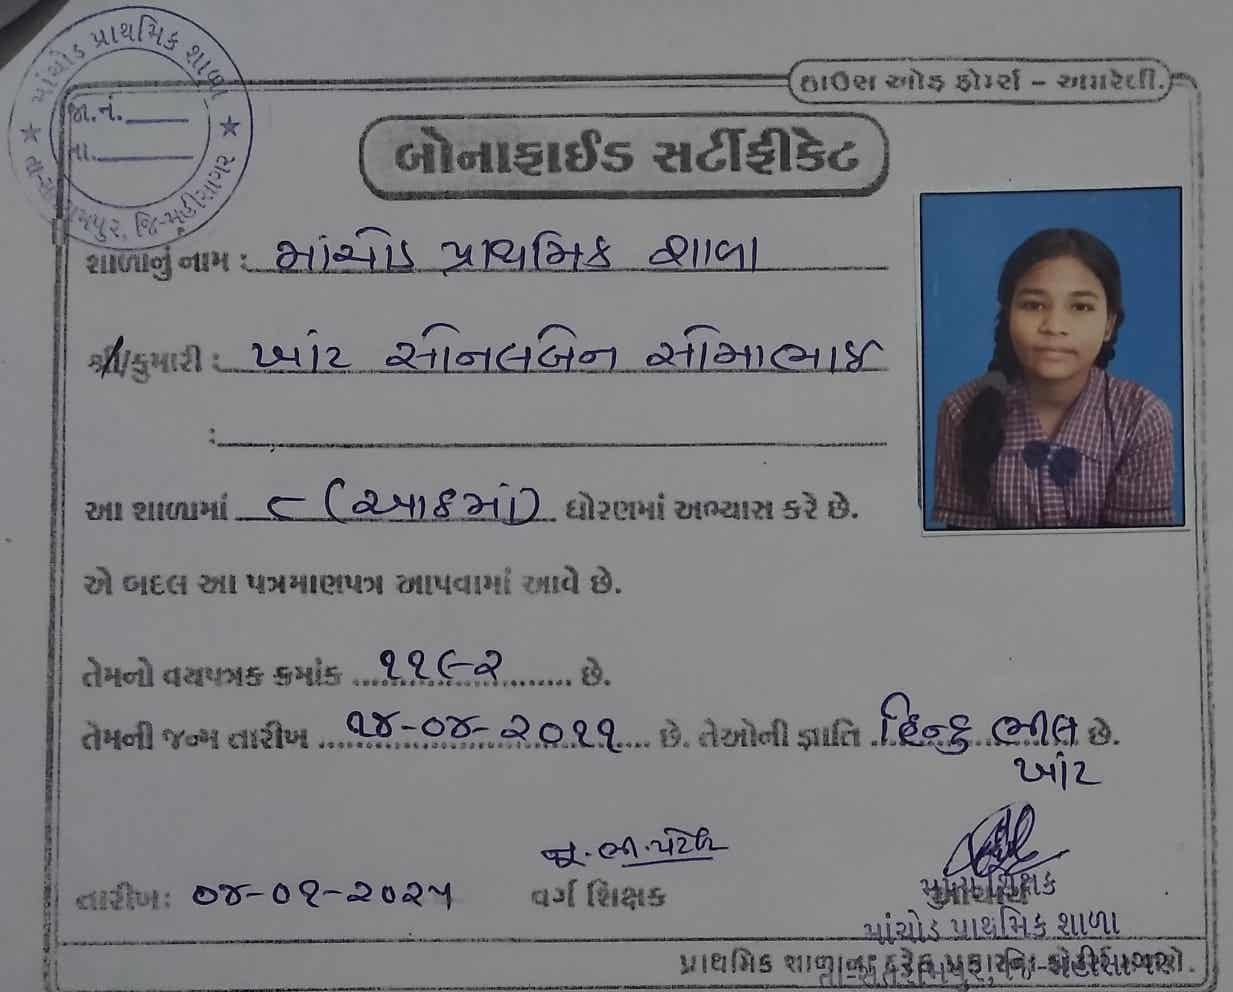 માંચોડ પ્રાથમિક શાળા
જા.નં.
તા.
જિ-મહીસાગર
હાઉસ ઓફ ફોર્મ્સ - અમરેલી.
બોનાફાઈડ સર્ટીફીકેટ
શાળાનું નામ : માંચોડ પ્રાથમિક શાળા
શ્રી/કુમારી : ખાંટ સોનલબેન સોમાભાઈ
આ શાળામાં ૮ (આઠમાં) ધોરણમાં અભ્યાસ કરે છે.
એ બદલ આ પત્રમાણપત્ર આપવામાં આવે છે.
તેમનો વયપત્રક ક્રમાંક ૧૧૯૨ છે.
તેમની જન્મ તારીખ ૧૪-૦૪-૨૦૧૧ છે. તેઓની જ્ઞાતિ હિન્દુ ભીલ છે.
ખાંટ
જી.ભા.પટેલ
તારીખ: ૦૪-૦૧-૨૦૨૫ વર્ગ શિક્ષક મુખ્ય શિક્ષક
માંચોડ પ્રાથમિક શાળા
પ્રાથમિક શાળાના દરેક પ્રકારના